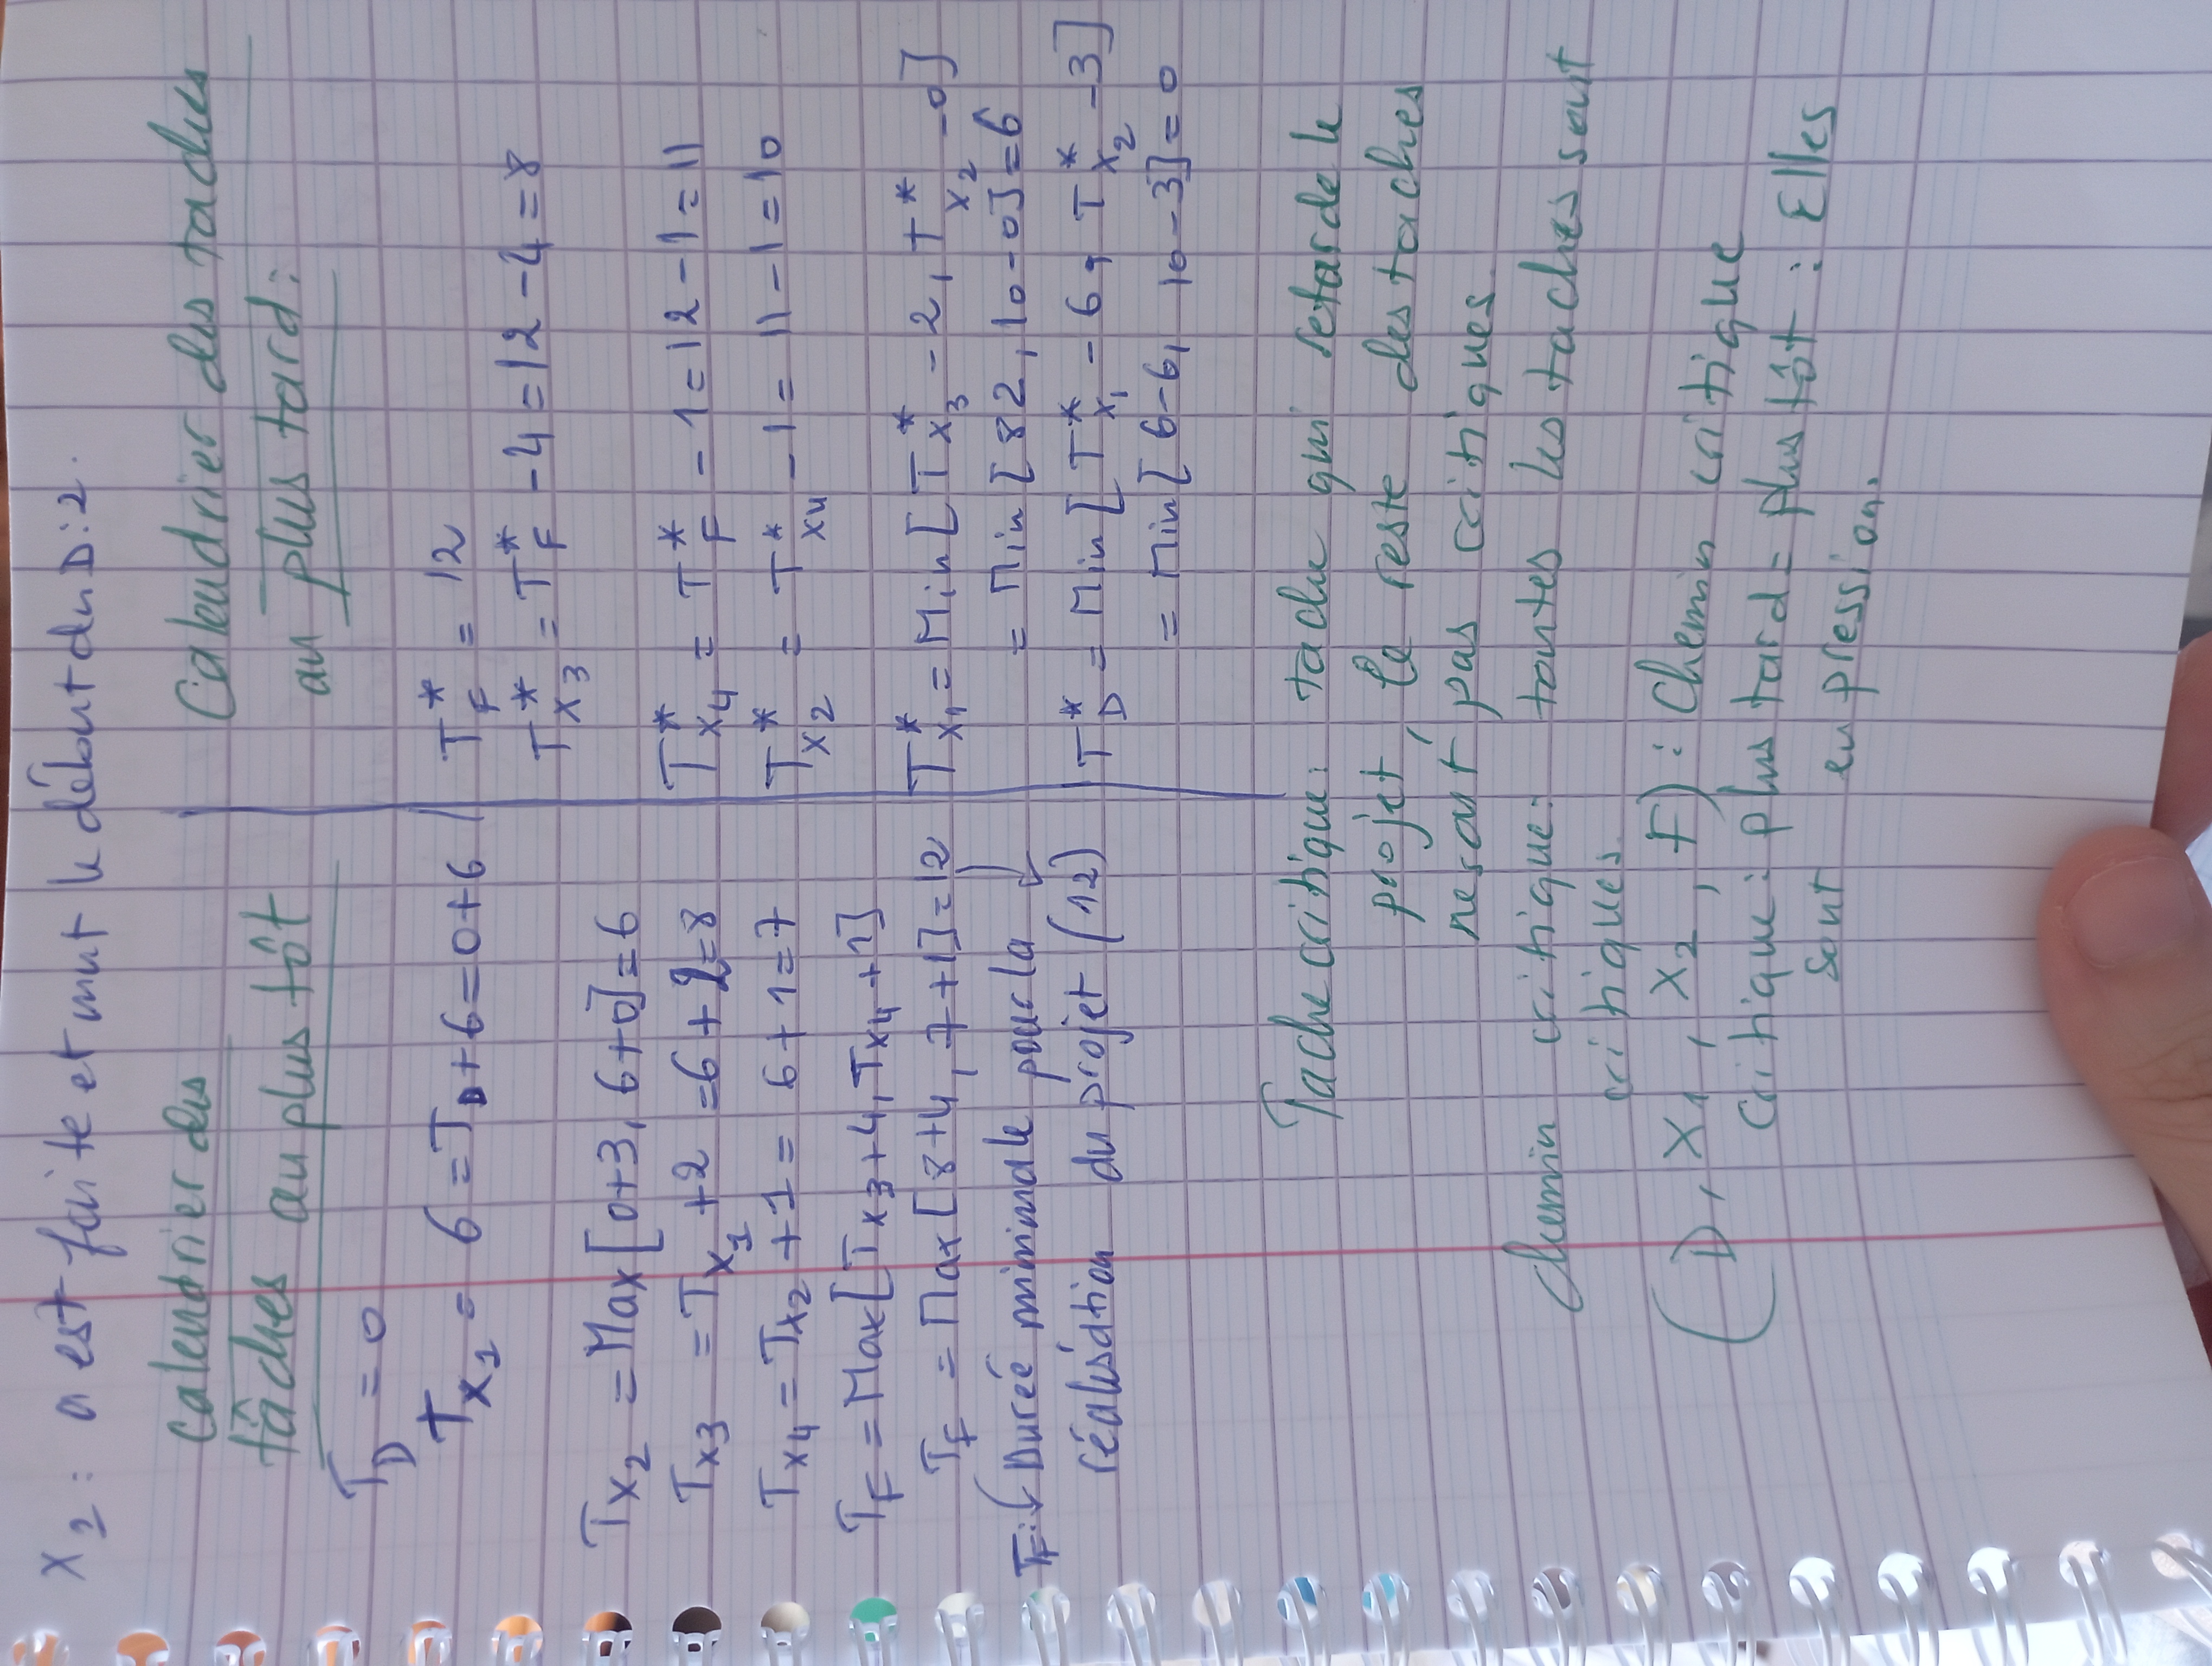 X₂ : a est faite et mut le début du D : 2.
Calendrier des
tâches au plus tôt
T_D = 0
T_X₁ = 6 = T_D + 6 = 0 + 6
T_X₂ = Max [0+3, 6+0] = 6
T_X3 = T_X₁ + 2 = 6 + 2 = 8
T_X4 = T_X2 + 1 = 6 + 1 = 7
T_F = Max [T_X3 + 4, T_X4 + 1]
T_F = Max [8+4, 7+1] = 12
T_F : Durée minimale pour la
réalisation du projet (12)
Calendrier des taches
au plus tard :
T*_F = 12
T*_X3 = T*_F - 4 = 12 - 4 = 8
T*_X4 = T*_F - 1 = 12 - 1 = 11
T*_X2 = T*_X4 - 1 = 11 - 1 = 10
T*_X1 = Min [T*_X3 - 2, T*_X2 - 0]
= Min [82, 10-0] = 6
T*_D = Min [T*_X1 - 6, T*_X2 - 3]
= Min [6-6, 10-3] = 0
Tache critique : tache qui retarde le
projet, le reste des taches
ne sont pas critiques.
Chemin critique : toutes les taches sont
critiques.
(D, X1, X2, F) : Chemin critique
Critique : plus tard = plus tôt : Elles
sont en pression.